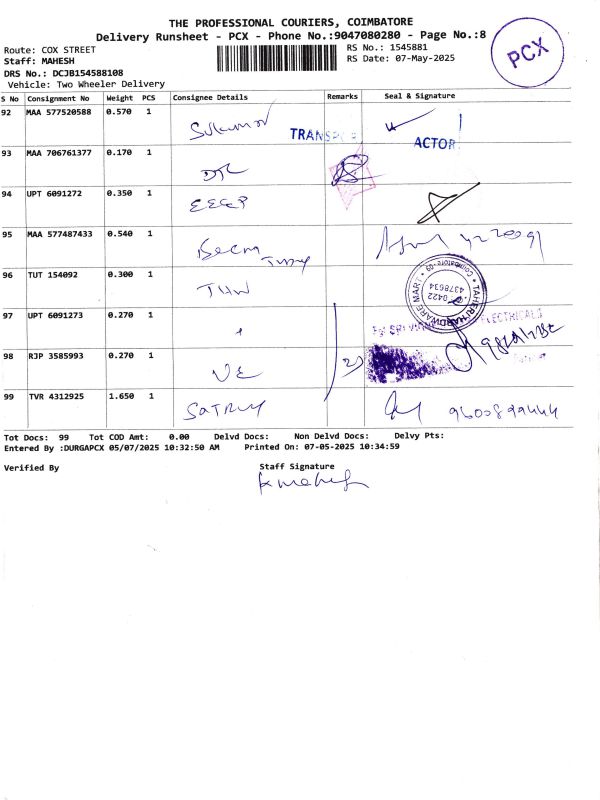 THE PROFESSIONAL COURIERS, COIMBATORE
Delivery Runsheet - PCX - Phone No.:9047080280 - Page No.:8
Route: COX STREET
RS No.: 1545881
Staff: MAHESH
RS Date: 07-May-2025
DRS No.: DCJB154588108
Vehicle: Two Wheeler Delivery
PCX
S No Consignment No Weight PCS Consignee Details Remarks Seal & Signature
92 MAA 577520588 0.570 1
ACTOR
93 MAA 706761377 0.170 1
94 UPT 6091272 0.350 1
95 MAA 577487433 0.540 1
96 TUT 154092 0.300 1 THW
TAHERI HARDWARE MART
0422
4378634
97 UPT 6091273 0.270 1
ELECTRICALS
98 RJP 3585993 0.270 1 VE
99 TVR 4312925 1.650 1
Tot Docs: 99 Tot COD Amt: 0.00 Delvd Docs: Non Delvd Docs: Delvy Pts:
Entered By :DURGAPCX 05/07/2025 10:32:50 AM Printed On: 07-05-2025 10:34:59
Verified By Staff Signature